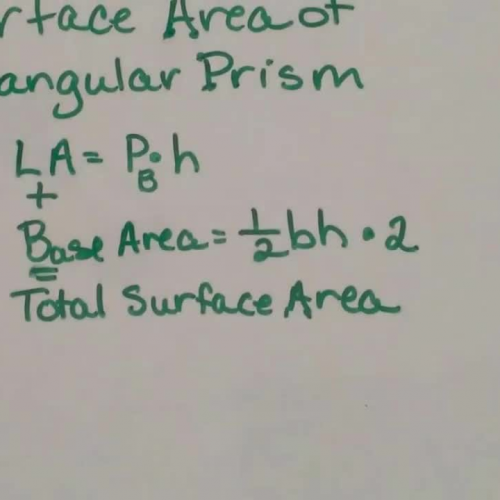 rface Area of
angular Prism
LA = P_B · h
+
Base Area = 1/2 bh · 2
=
Total Surface Area